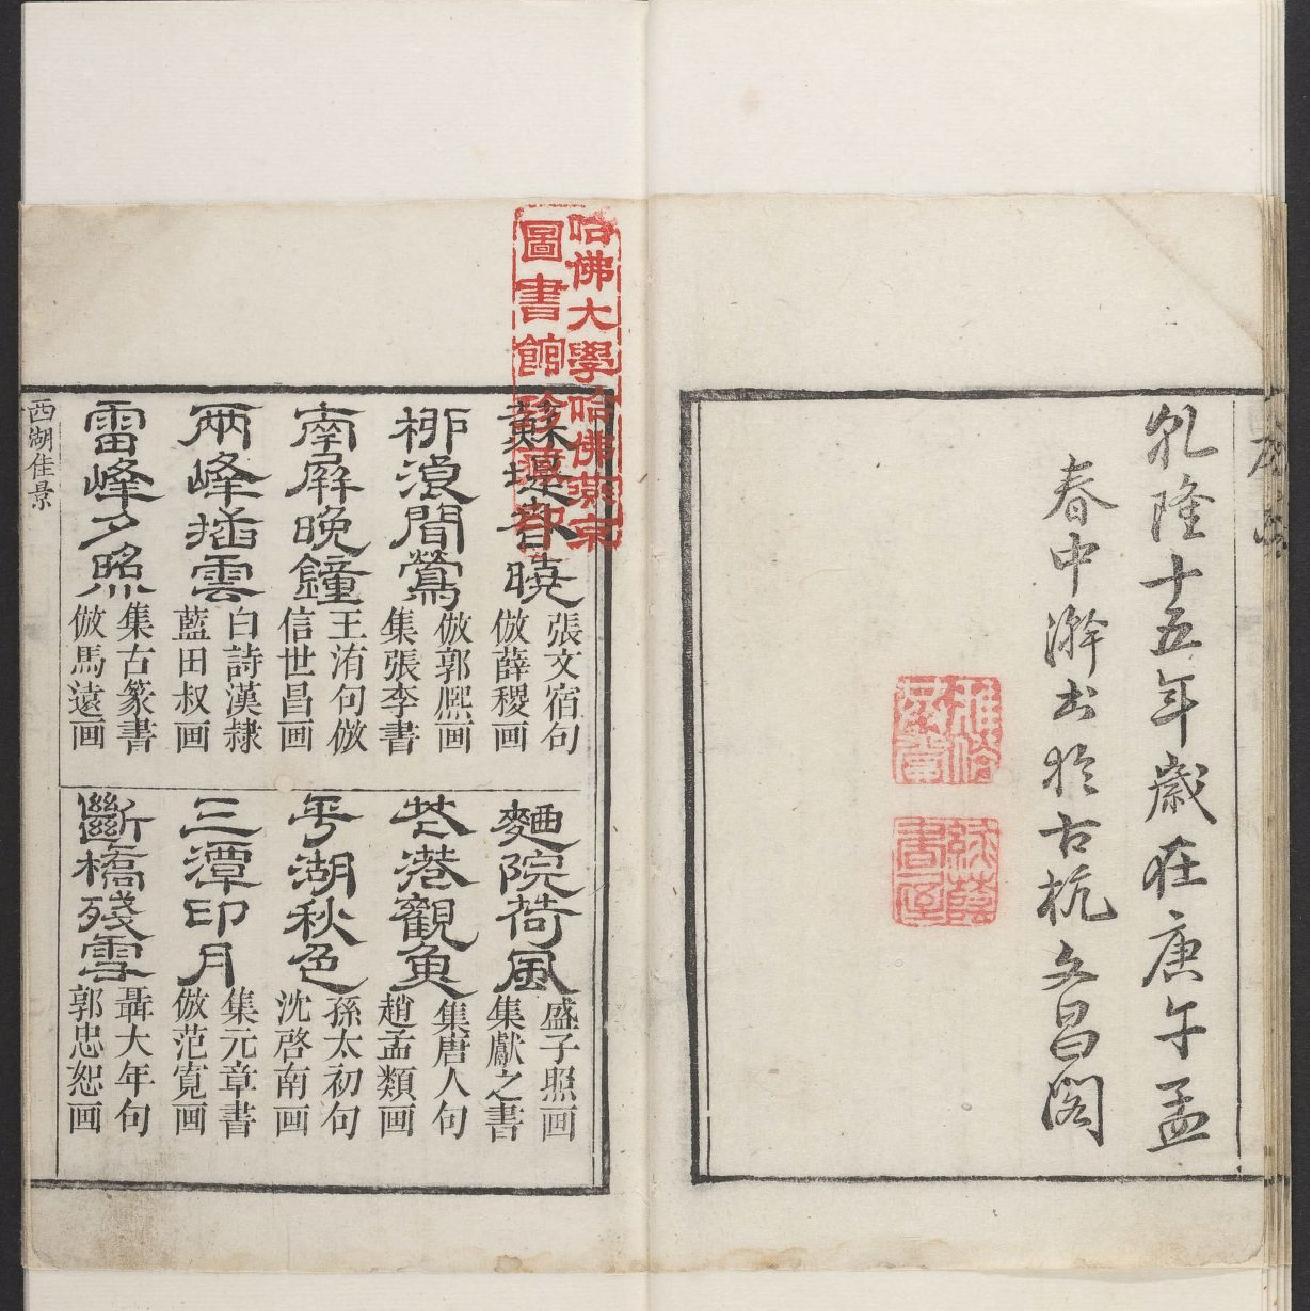 乹隆十五年歲在庚午孟
春中澣書於古杭文昌閣
哈佛大學哈佛燕京
圖書館珍藏印
蘇堤春曉
張文宿句
倣薛稷画
栁浪聞鶯
倣郭熈画
集張李書
南屏晚鐘
王洧句倣
信世昌画
兩峰揷雲
白詩漢隸
藍田叔画
雷峰夕照
集古篆書
倣馬遠画
麯院荷風
盛子照画
集獻之書
花港觀魚
集唐人句
趙孟類画
平湖秋色
孫太初句
沈啓南画
三潭印月
集元章書
倣范寬画
斷橋殘雪
聶大年句
郭忠恕画
西湖佳景